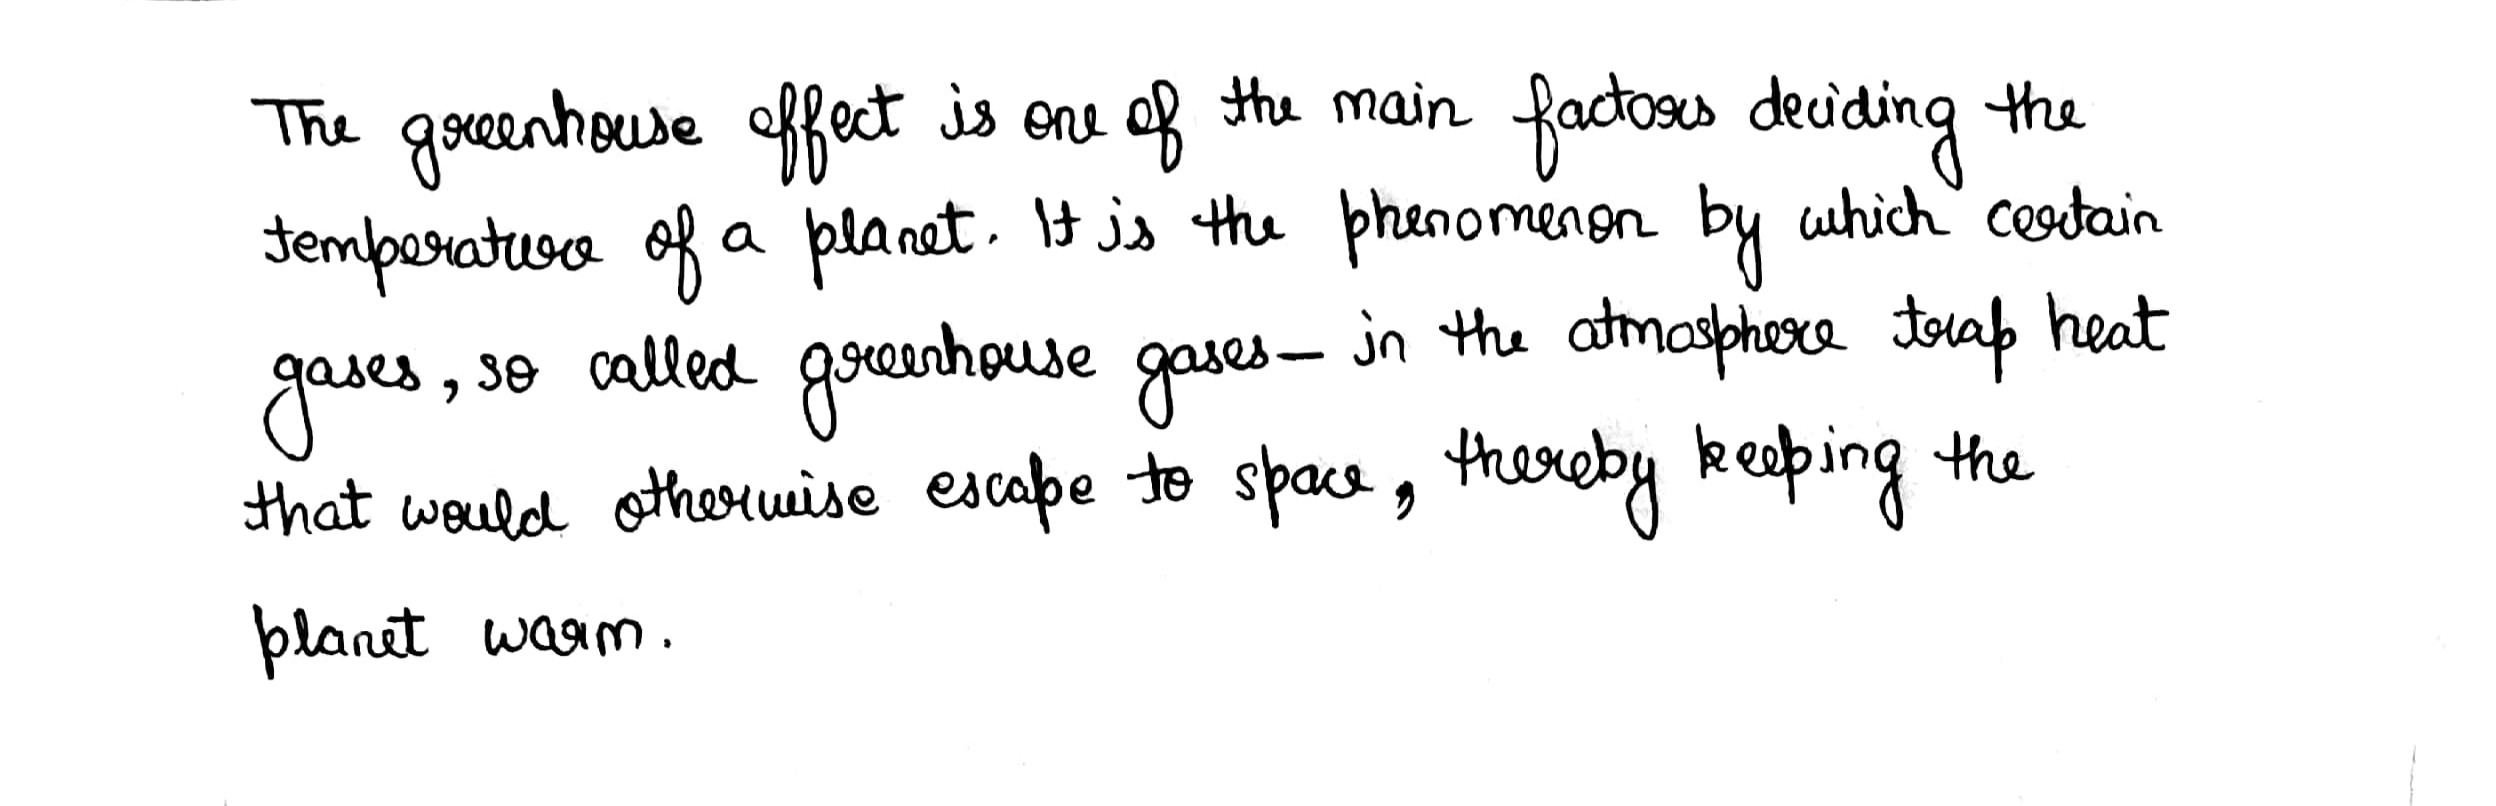 The greenhouse effect is one of the main factors deciding the
temperature of a planet. It is the phenomenon by which certain
gases, so called greenhouse gases— in the atmosphere trap heat
that would otherwise escape to space, thereby keeping the
planet warm.